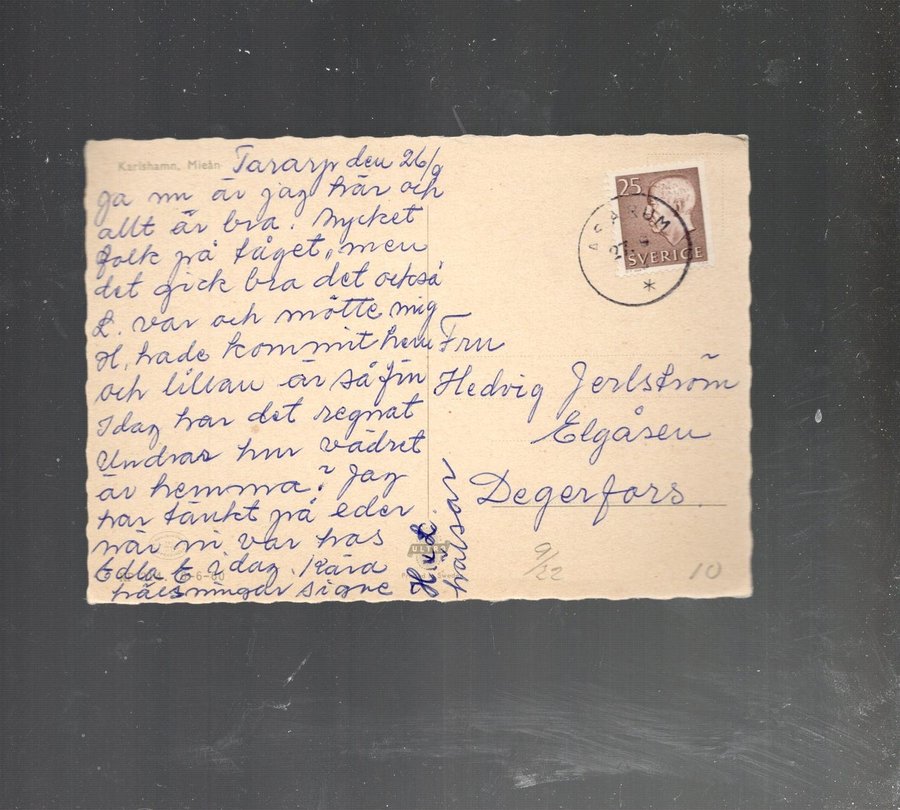 Karlshamn, Mieån
Tararp den 26/9
Ja nu är jag här och
allt är bra. Mycket
folk på tåget, men
det gick bra det också
L. var och mötte mig
H, hade kommit hem
och lillan är så fin
Idag har det regnat
Undrar hur vädret
är hemma? Jag
har tänkt på eder
när ni var hos
Edla E idag. Kära
hälsningar Signe
H o L
hälsar
25
SVERIGE
ASARUM
27. 9
*
Fru
Hedvig Jerlström
Elgåsen
Degerfors.
ULTRA
9/22
10